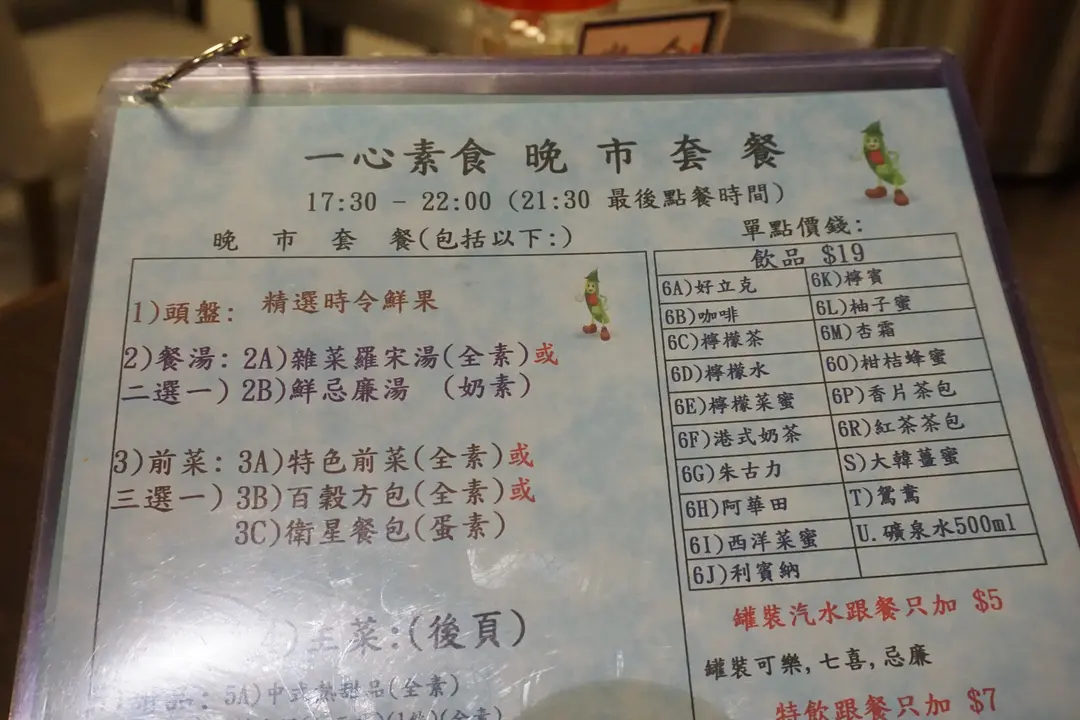 一心素食 晚 市 套 餐
17:30 - 22:00 (21:30 最後點餐時間)
晚 市 套 餐(包括以下:)
1)頭盤: 精選時令鮮果
2)餐湯: 2A)雜菜羅宋湯(全素)或
二選一) 2B)鮮忌廉湯 (奶素)
3)前菜: 3A)特色前菜(全素)或
三選一) 3B)百穀方包(全素)或
3C)衛星餐包(蛋素)
4)主菜:(後頁)
甜品: 5A)中式熱甜品(全素)
單點價錢:
飲品 $19
6A)好立克
6K)檸賓
6B)咖啡
6L)柚子蜜
6C)檸檬茶
6M)杏霜
6D)檸檬水
6O)柑桔蜂蜜
6E)檸檬菜蜜
6P)香片茶包
6F)港式奶茶
6R)紅茶茶包
6G)朱古力
S)大韓薑蜜
6H)阿華田
T)鴛鴦
6I)西洋菜蜜
U.礦泉水500ml
6J)利賓納
罐裝汽水跟餐只加 $5
罐裝可樂,七喜,忌廉
特飲跟餐只加 $7